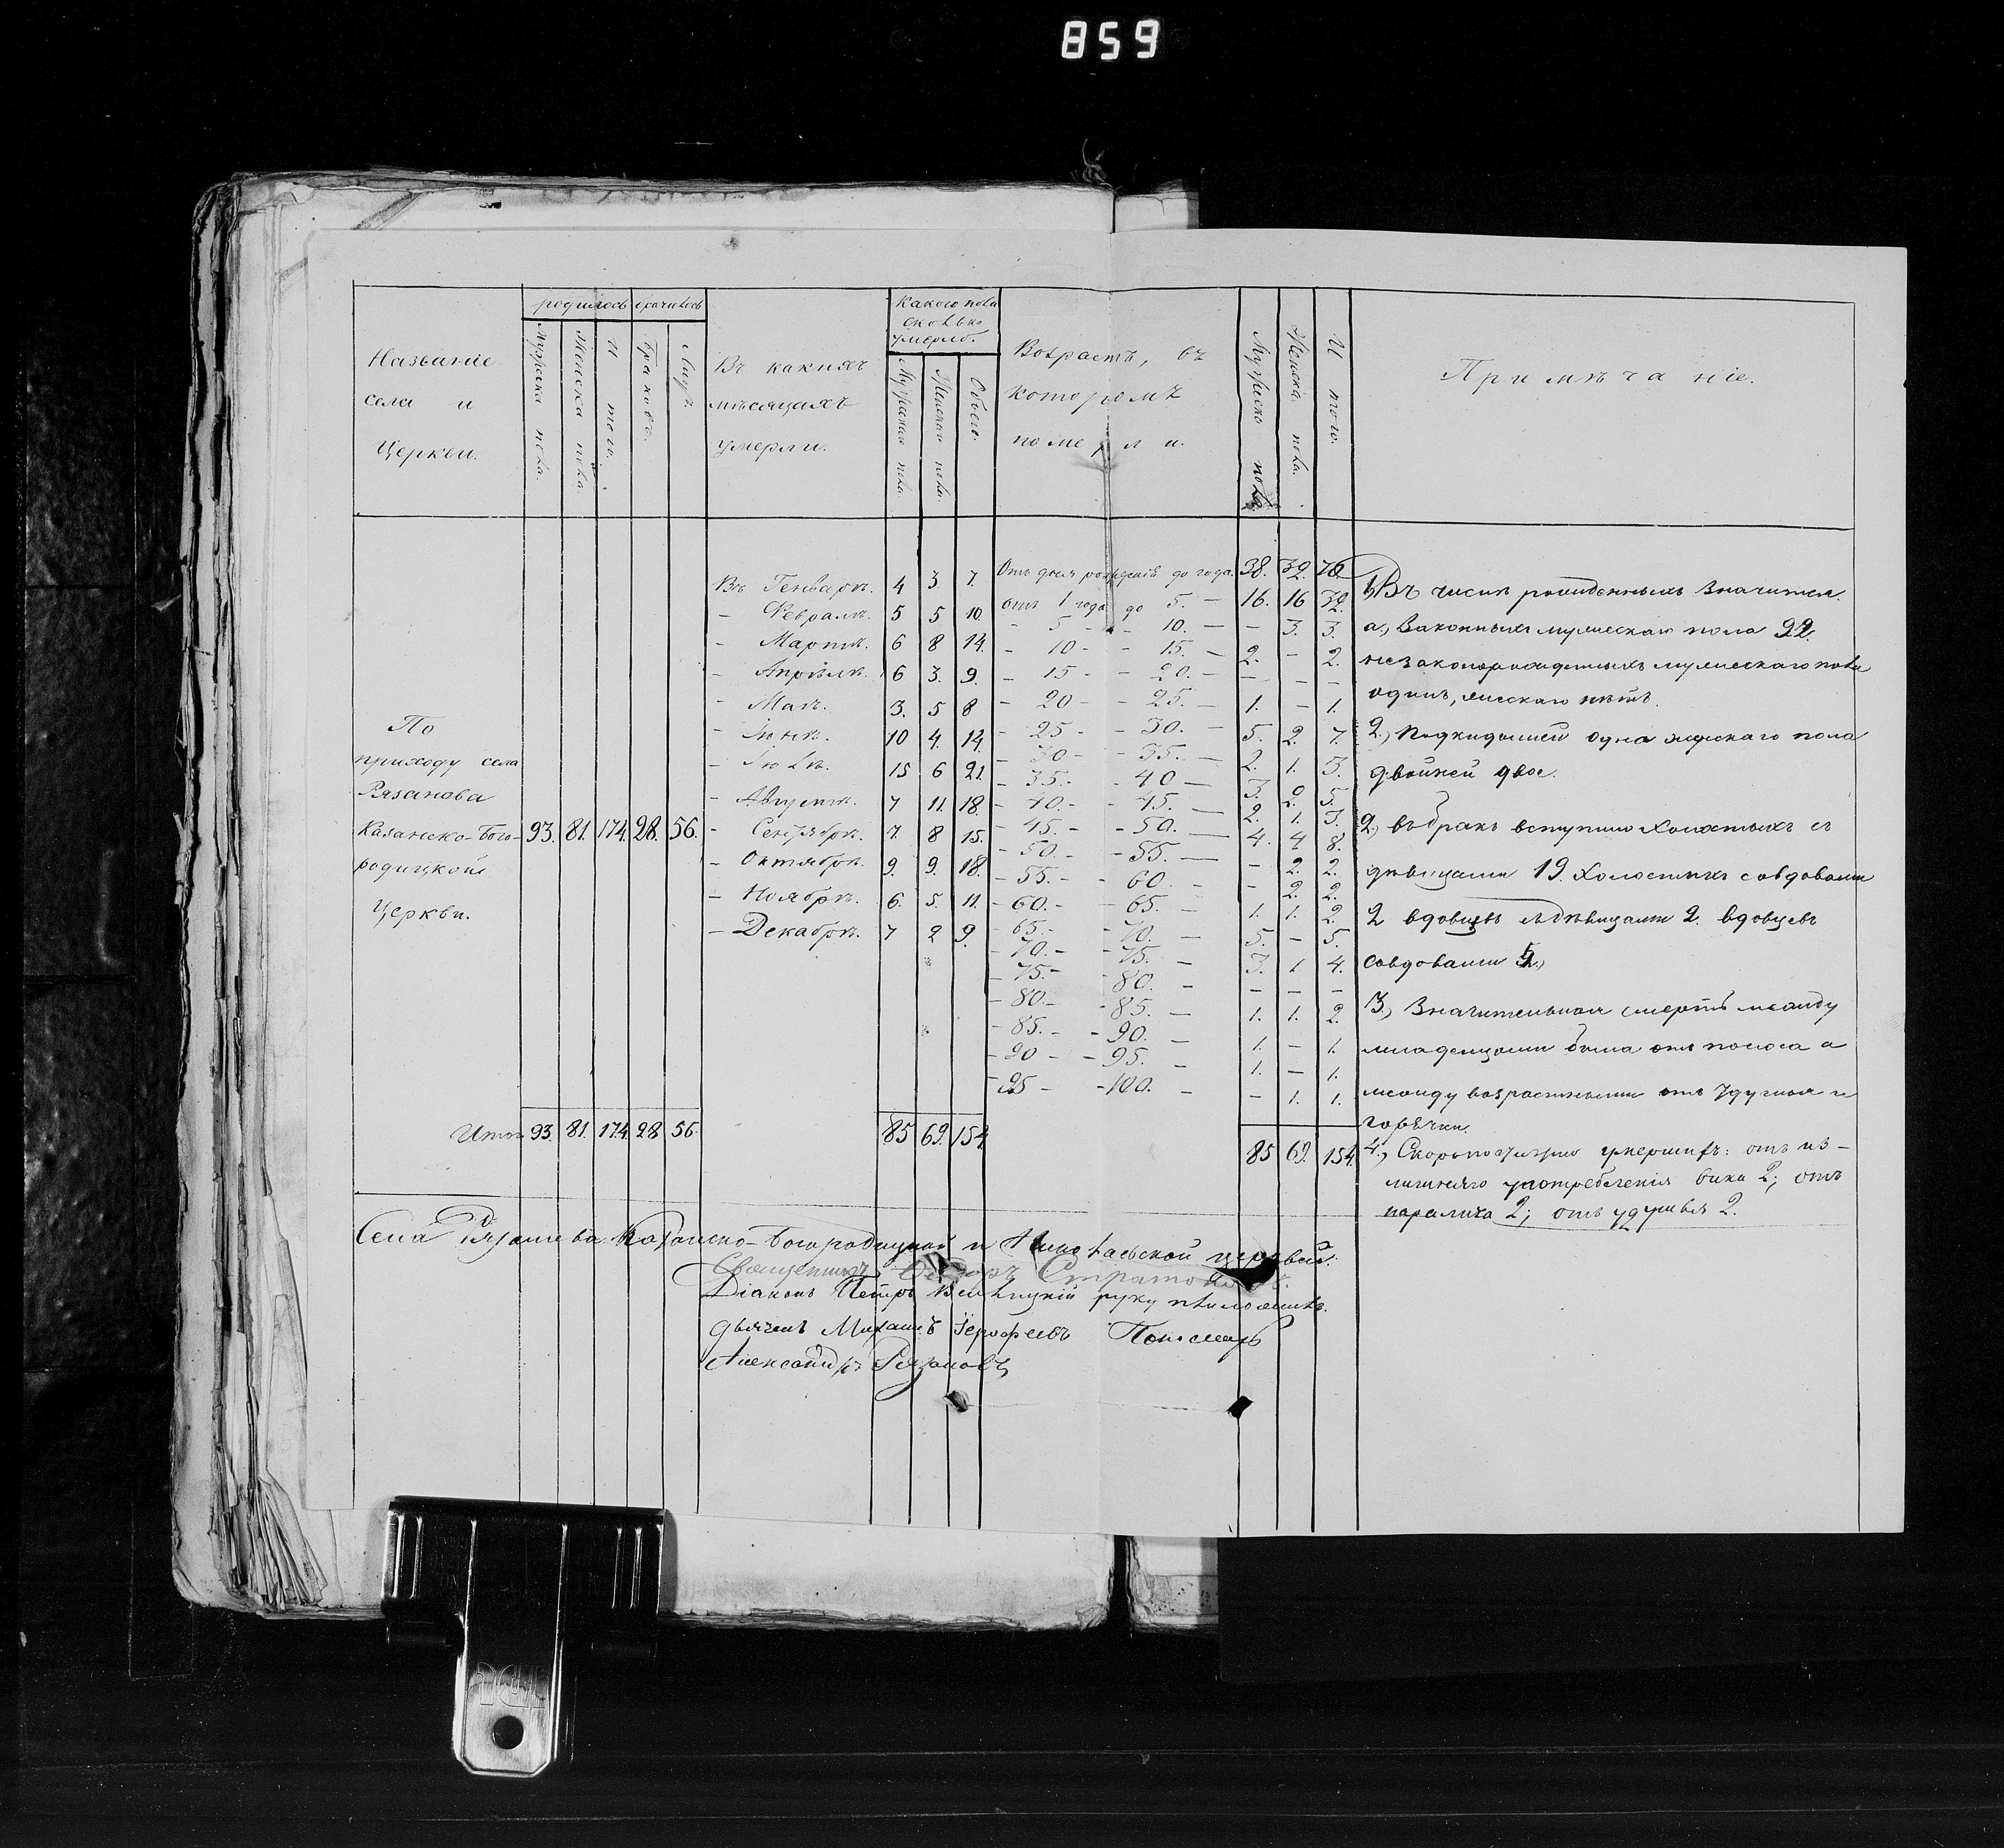 859
Названіе
села и
Церкви.
родилось
Мужеска пола.
Женска пола.
И того.
брачилось
Браковъ.
Лицъ
Въ какихъ
мѣсяцахъ
умерли.
Какого пола
сколько
умерло.
Мужеска пола.
Женска пола.
Обоего.
Возрастъ, въ
которомъ
померли.
Мужеска пола.
Женска пола.
И того.
Примѣчаніе.
По
приходу села
Рязанова
Казанско-Бого-
родицкой
Церкви.
93. 81. 174. 28. 56.
Въ Генварѣ. 4 3 7.
- Февралѣ. 5 5 10.
- Мартѣ. 6 8 14.
- Апрѣлѣ. 6 3. 9.
- Маѣ. 3. 5 8
- Іюнѣ. 10 4. 14.
- Іюлѣ. 15 6 21.
- Августѣ. 7 11. 18.
- Сентябрѣ. 7. 8 15.
- Октябрѣ. 9. 9. 18.
- Ноябрѣ. 6. 5. 11.
- Декабрѣ. 7 2 9.
Отъ дня рожденія до года. 38. 32. 70.
отъ 1 года до 5. - 16. 16 32.
- 5 - - 10. - - 3. 3.
- 10 - - 15. - 2. - 2.
- 15 - - 20. - - - -
- 20 - - 25. - 1. - 1.
- 25 - - 30. - 5. 2. 7.
- 30 - - 35. - 2. 1. 3.
- 35. - - 40 - 3. 2. 5.
- 40. - - 45. - 2. 1. 3.
- 45. - - 50. - 4. 4 8.
- 50. - - 55. - - 2. 2.
- 55. - - 60. - - 2. 2.
- 60. - - 65. - 1. 1. 2.
- 65. - - 70. - 5. - 5.
- 70. - - 75. - 3. 1 4.
- 75. - - 80. - - - -
- 80. - - 85. - 1. 1. 2.
- 85. - - 90. - 1. - 1.
- 90 - - 95. - 1. - 1.
- 95 - - 100. - - 1. 1.
1) Въ числѣ рожденныхъ значится.
а., Законныхъ мужескаго пола 92.
незаконорожденныхъ мужескаго пола
одинъ, женскаго нѣтъ.
2.) Подкидышей одна женскаго пола
двойней двое.
2.) въ бракъ вступило холостыхъ съ
дѣвицами 19. Холостыхъ совдовами
2 вдовцевъ съ дѣвицами 2. вдовцевъ
совдовами 5.,
3.) Значительная смерть между
младенцами была отъ поноса а
между возрастными отъ удушья и
горячки.
4.) Скоропостижно умершихъ: отъ из-
лишняго употребленія вина 2; отъ
паралича 2; отъ удушья 2.
Итого 93. 81. 174. 28 56.
85 69. 154.
85 69. 154.
Села Рязанова Казанско-Богородицкой и Николаевской церквей.
Священникъ Стратоновъ.
Діаконъ Петръ руку приложилъ.
дьячекъ Михаилъ Іерофеевъ Пономарь
Александръ Рязановъ